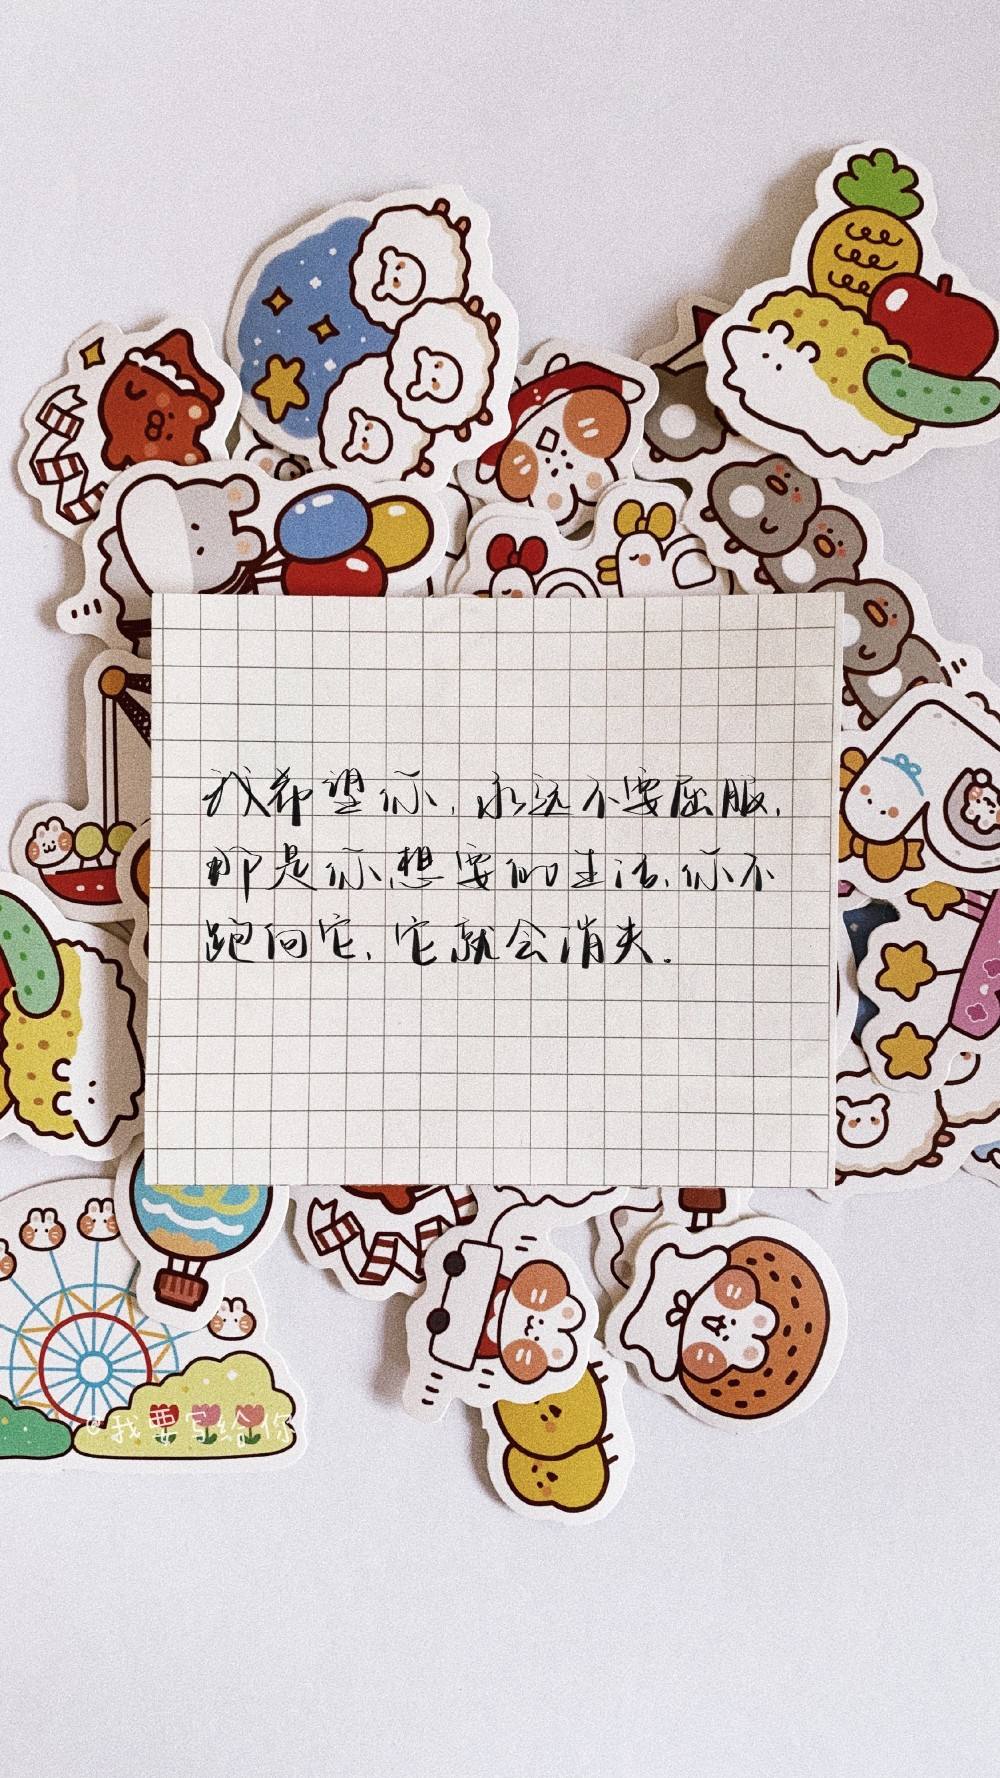 我希望你,永远不要屈服,
那是你想要的生活,你不
跑向它,它就会消失.
@我要写给你